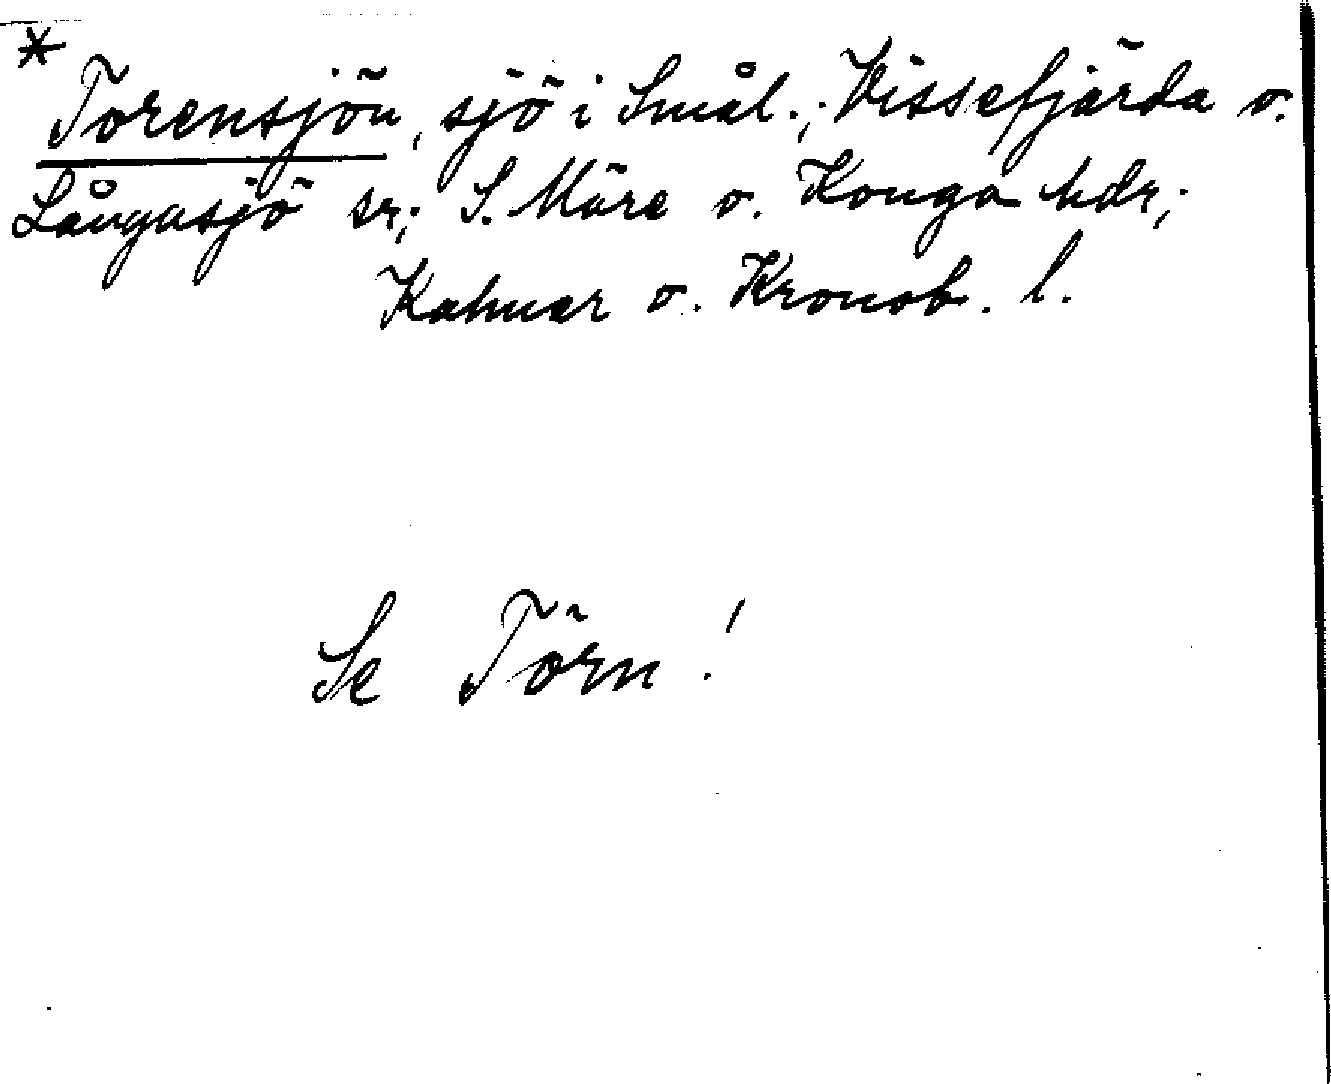 *
Torensjön, sjö i Smål.; Vissefjärda o.
Långasjö sr; S. Möre o. Konga hdr;
Kalmar o. Kronob. l.
Se Törn!